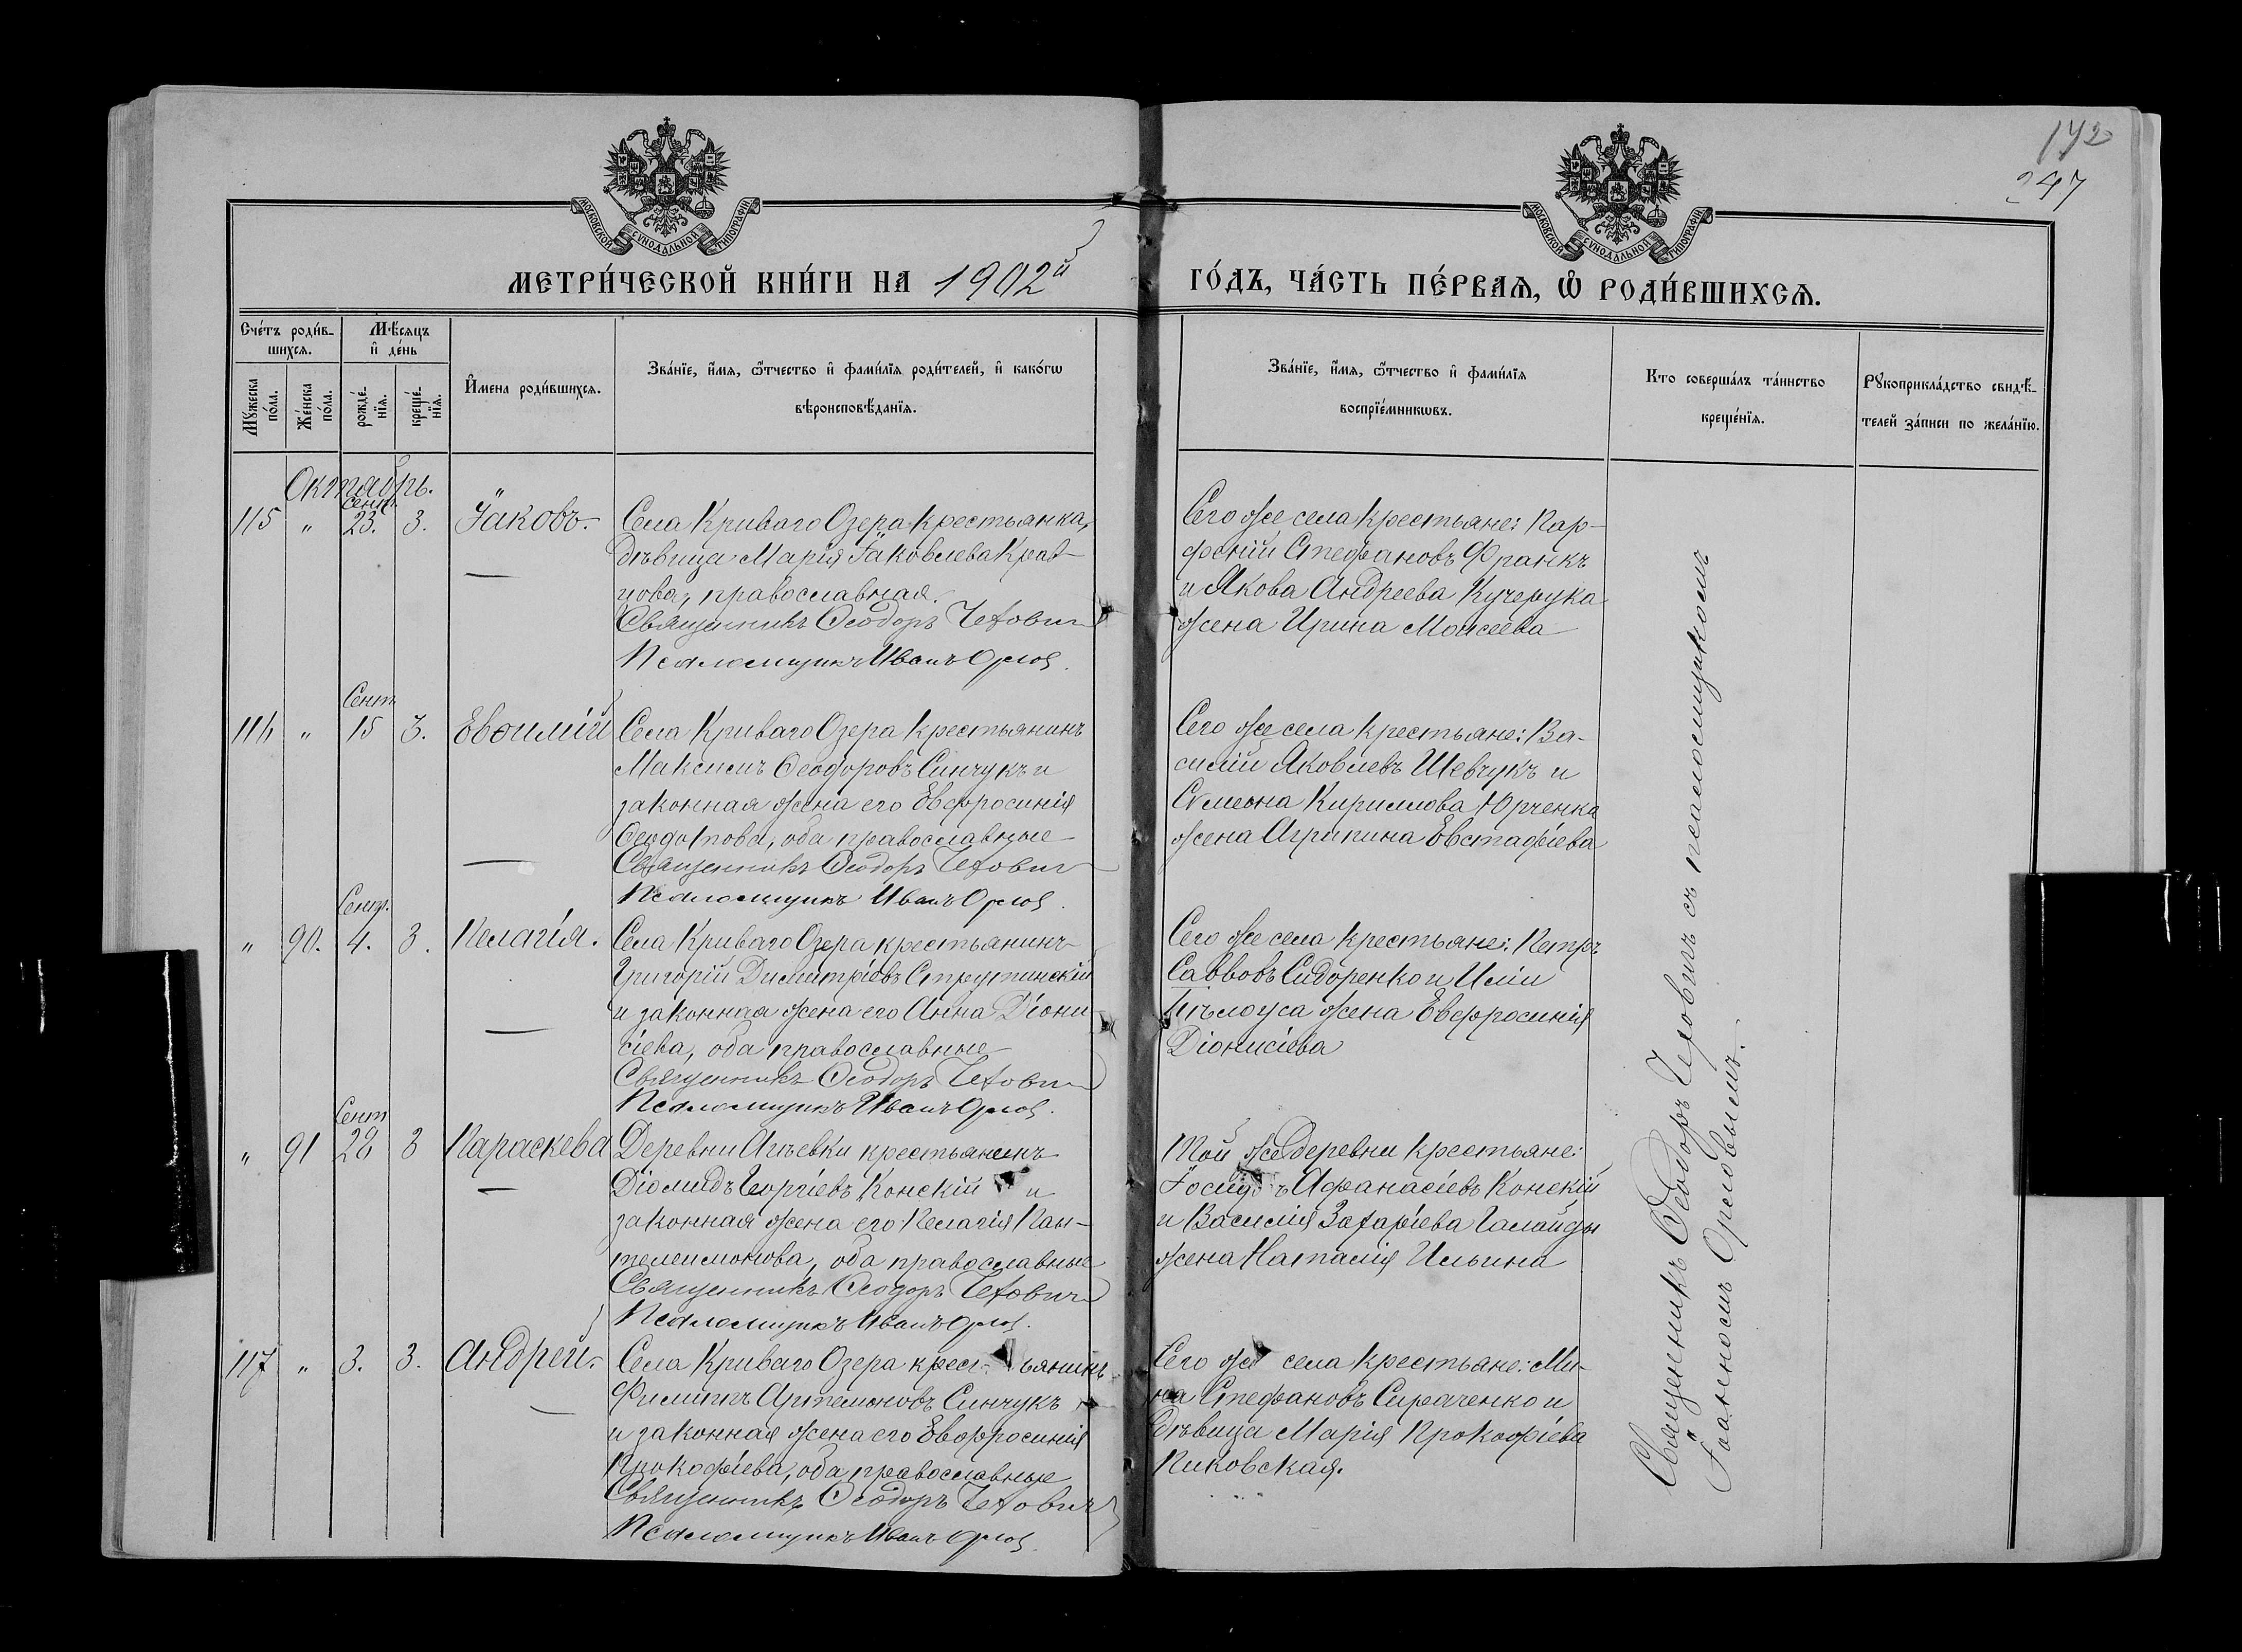 172
247
МОСКОВСКОЙ СѴНОДАЛЬНОЙ ТИПОГРАФІИ
МОСКОВСКОЙ СѴНОДАЛЬНОЙ ТИПОГРАФІИ
МЕТРИ́ЧЕСКОЙ КНИ́ГИ НА 1902й ГО́ДЪ, ЧА́СТЬ ПЕ́РВАѦ, Ѡ҆ РОДИ́ВШИХСѦ.
Сче́тъ роди́в-
шихсѧ.
Мѣ́сяцъ
и҆ де́нь
Мꙋ́жеска по́ла.
Же́нска по́ла.
рожде́-нїѧ.
креще́-нїѧ.
И҆мена роди́вшихсѧ.
Зва́нїе, и҆́мѧ, ѻ҆́тчество и҆ фами́лїѧ роди́телей, и҆ како́гѡ
вѣроисповѣ́данїѧ.
Зва́нїе, и҆́мѧ, ѻ҆́тчество и҆ фами́лїѧ
воспрїе́мникѡвъ.
Кто соверша́лъ та́инство
креще́нїѧ.
Рꙋкоприкла́дство свидѣ́-
телей за́писи по жела́нїю.
Октябрь.
Сент.
115 " 23. 3. Іаковъ.
Села Криваго Озера крестьянка,
дѣвица Марія Іаковлева Крав-
цова, православная.
Священникъ Ѳеодоръ Чехович
Псаломщикъ Иванъ Орлов.
Сего же села крестьяне: Пар-
феній Стефановъ Франкъ
и Якова Андреева Кучерука
жена Ирина Моисеева
Сент
116 " 15 3. Евѳимій
Села Криваго Озера крестьянинъ
Максимъ Ѳеодоровъ Синчукъ и
законная жена его Евфросинія
Ѳеодотова, оба православные
Священникъ Ѳеодоръ Чехович
Псаломщикъ Иванъ Орлов.
Сего же села крестьяне: Ва-
силій Яковлевъ Шевчукъ и
Сѵмеона Кириллова Юрченка
жена Агрипина Евстафіева
Сент.
" 90. 4. 3. Пелагія.
Села Криваго Озера крестьянинъ
Григорій Димитріевъ Струтинскій
и законная жена его Анна Діони-
сіева, оба православные
Священникъ Ѳеодоръ Чехович
Псаломщикъ Иванъ Орлов.
Сего же села крестьяне: Петръ
Савввовъ Сидоренко и Иліи
Бѣлоуса жена Евфросинія
Діонисіева
Сент
" 91 28 3 Параскева
Деревни крестьянинъ
Діомидъ Георгіевъ Конскій и
законная жена его Пелагія Пан-
телеимонова, оба православные
Священникъ Ѳеодоръ Чехович
Псаломщикъ Иванъ Орлов.
Той же деревни крестьяне:
Аѳанасіевъ Конскій
и Василія Захаріева Галайды
жена Наталія Ильина
117 " 3. 3. Андрей.
Села Криваго Озера крестьянинъ
Филиппъ Артемоновъ Синчукъ
и законная жена его Евфросинія
Прокофіева, оба православные
Священникъ Ѳеодоръ Чехович
Псаломщикъ Иванъ Орлов.
Сего же села крестьяне: Ми-
на Стефановъ Сираченко и
дѣвица Марія Прокофіева
Пиковская.
Священникъ Ѳеодоръ Чеховичъ съ псаломщикомъ
Іоанномъ Орловымъ.